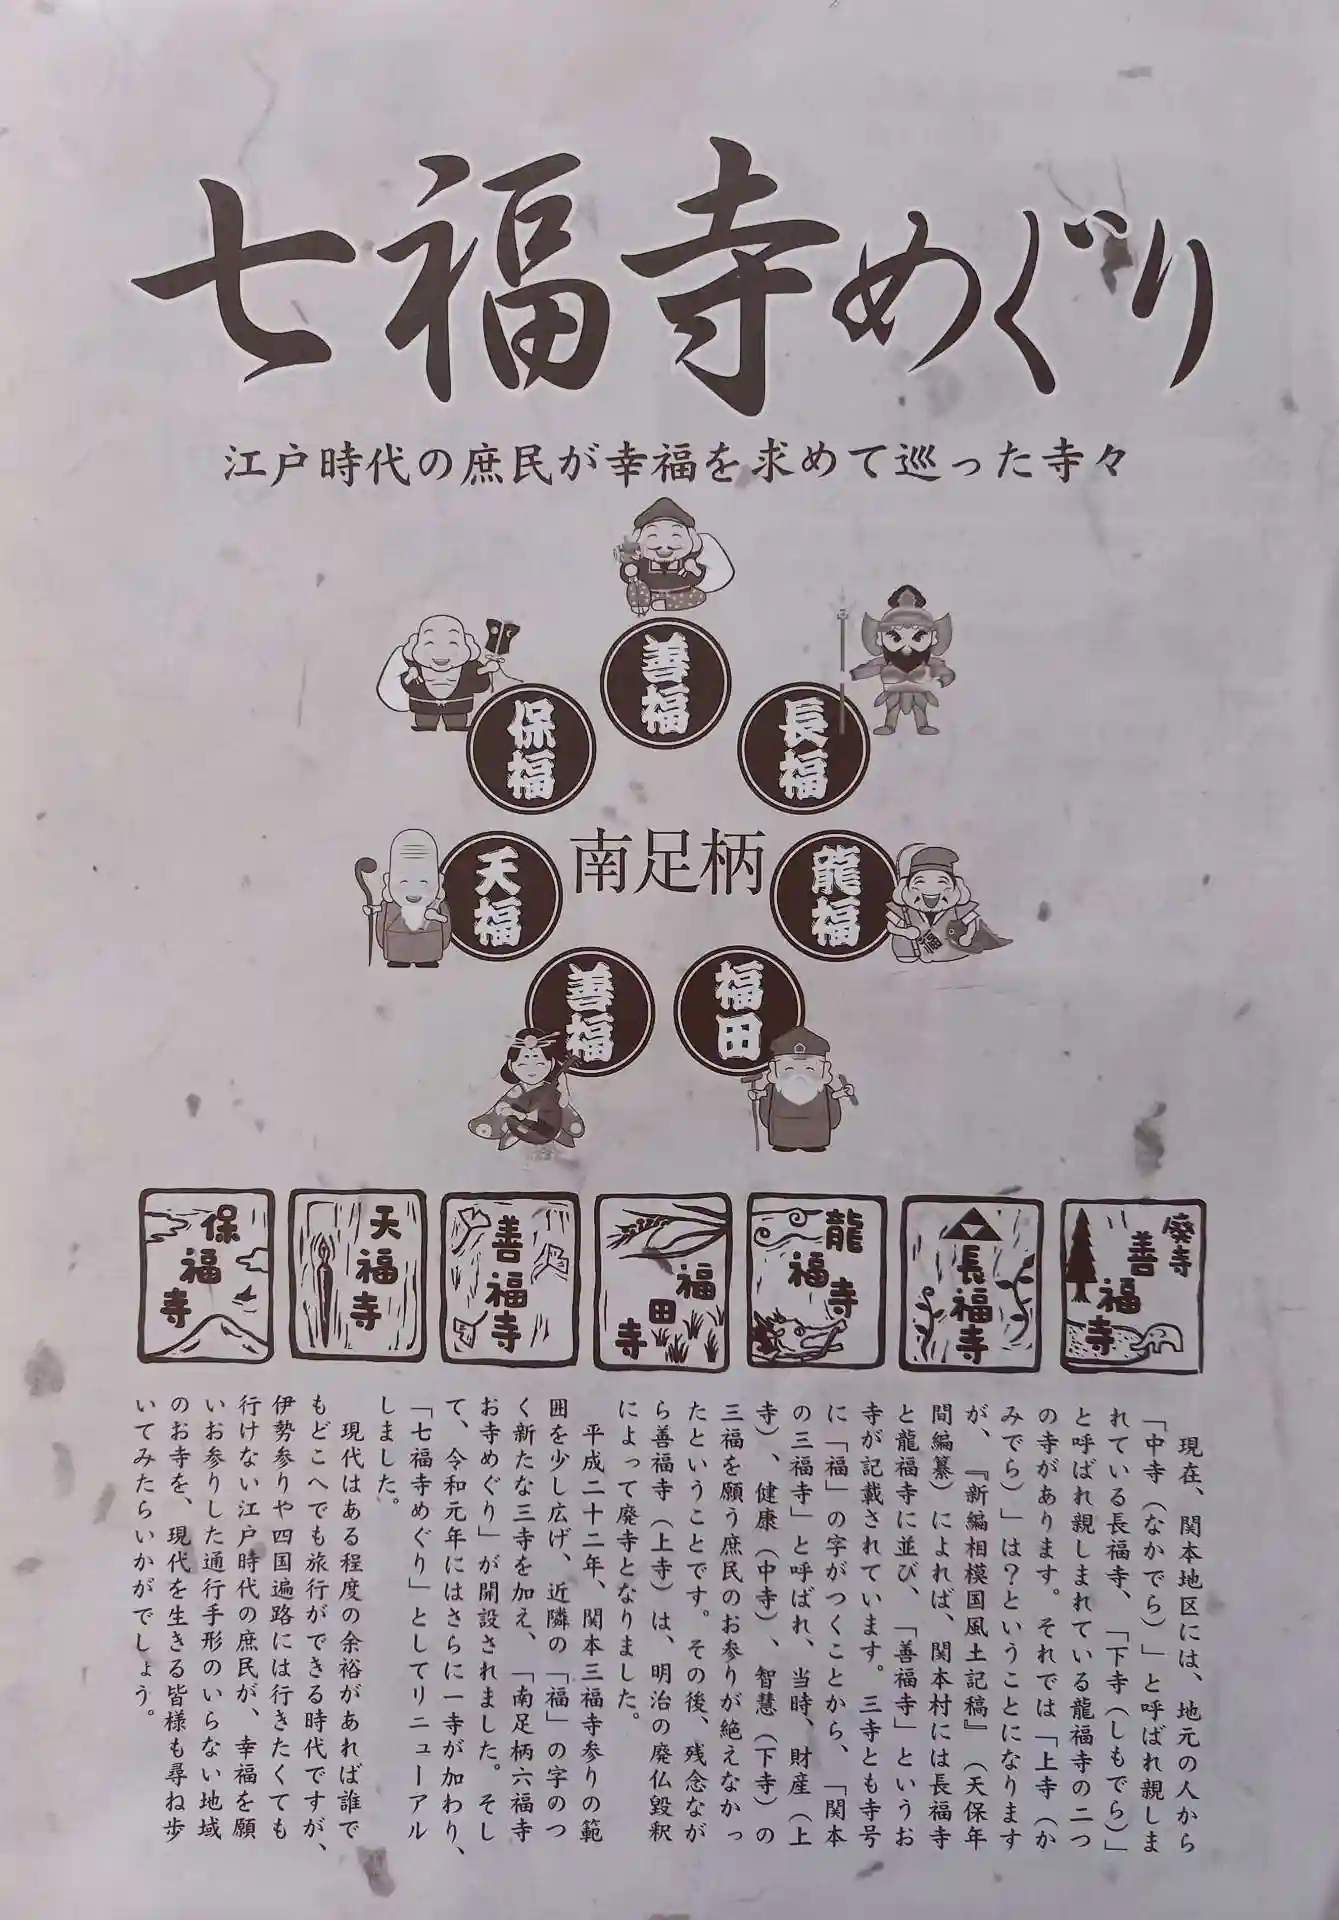 七福寺めぐり
江戸時代の庶民が幸福を求めて巡った寺々
善福
長福
保福
南足柄
龍福
天福
福田
善福
廃寺善福寺
長福寺
龍福寺
福田寺
善福寺
天福寺
保福寺
現在、関本地区には、地元の人から
「中寺（なかでら）」と呼ばれ親しま
れている長福寺、「下寺（しもでら）」
と呼ばれ親しまれている龍福寺の二つ
の寺があります。それでは「上寺（か
みでら）」は？ということになります
が、『新編相模国風土記稿』（天保年
間編纂）によれば、関本村には長福寺
と龍福寺に並び、「善福寺」というお
寺が記載されています。三寺とも寺号
に「福」の字がつくことから、「関本
の三福寺」と呼ばれ、当時、財産（上
寺）、健康（中寺）、智慧（下寺）の
三福を願う庶民のお参りが絶えなかっ
たということです。その後、残念なが
ら善福寺（上寺）は、明治の廃仏毀釈
によって廃寺となりました。
平成二十二年、関本三福寺参りの範
囲を少し広げ、近隣の「福」の字のつ
く新たな三寺を加え、「南足柄六福寺
お寺めぐり」が開設されました。そし
て、令和元年にはさらに一寺が加わり、
「七福寺めぐり」としてリニューアル
しました。
現代はある程度の余裕があれば誰で
もどこへでも旅行ができる時代ですが、
伊勢参りや四国遍路には行きたくても
行けない江戸時代の庶民が、幸福を願
いお参りした通行手形のいらない地域
のお寺を、現代を生きる皆様も尋ね歩
いてみたらいかがでしょう。